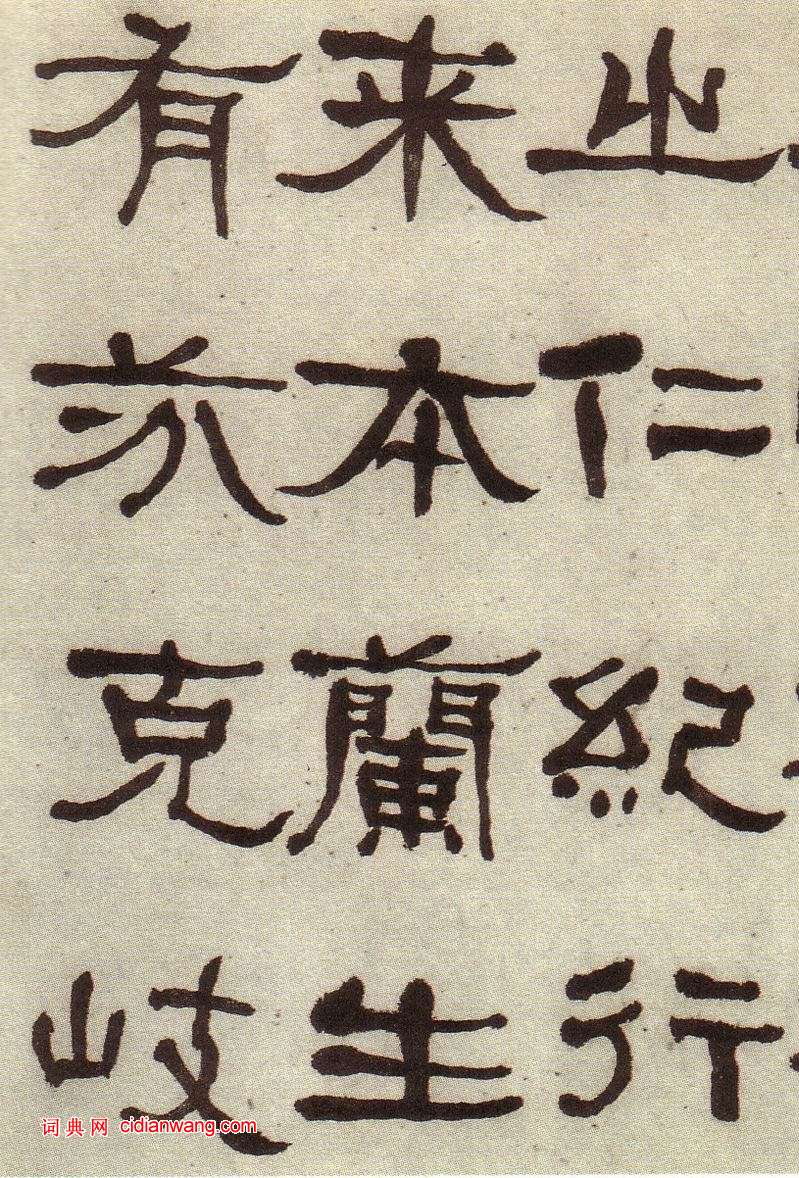 之仁紀行
来本蘭生
有芬克岐
词典网 cidianwang.com